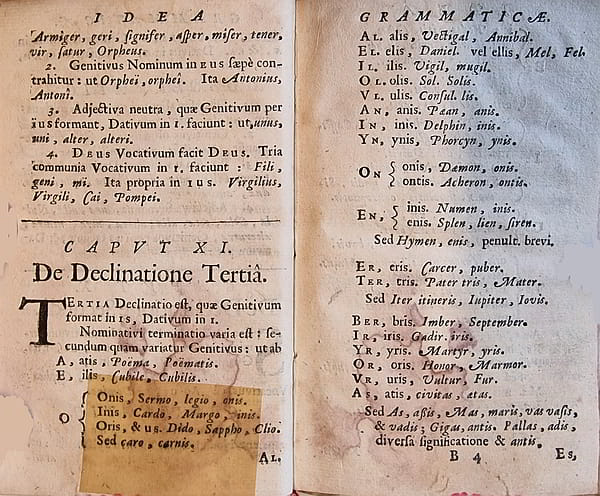 IDEA
Armiger, geri, signifer, asper, miser, tener,
vir, satur, Orpheus.
2. Genitivus Nominum in EUS sæpè con-
trahitur: ut Orpheï, orpheî. Ita Antonius,
Antonî.
3. Adjectiva neutra, quæ Genitivum per
ïus formant, Dativum in I. faciunt: ut, unus,
uni, alter, alteri.
4. DEUS Vocativum facit DEUS. Tria
communia Vocativum in I. faciunt: Fili,
geni, mi. Ita propria in IUS. Virgilius,
Virgili, Cai, Pompei.
CAPVT XI.
De Declinatione Tertiâ.
TERTIA Declinatio est, quæ Genitivum
format in IS, Dativum in I.
Nominativi terminatio varia est: se-
cundum quam variatur Genitivus: ut ab
A, atis, Poëma, Poëmatis.
E, ilis, Cubile, Cubilis.
O { Onis, Sermo, legio, onis.
Inis, Cardo, Margo, inis.
Oris, & us. Dido, Sappho, Clio.
Sed caro, carnis.
AL.
GRAMMATICÆ.
AL. alis, Vectigal, Annibal.
EL. elis, Daniel. vel ellis, Mel, Fel.
IL. ilis. Vigil, mugil.
OL. olis. Sol. Solis.
VL. ulis. Consul. lis.
AN, anis. Pæan, anis.
IN, inis. Delphin, inis.
YN, ynis, Phorcyn, ynis.
ON { onis, Dæmon, onis.
ontis. Acheron, ontis.
EN, { inis. Numen, inis.
enis. Splen, lien, siren.
Sed Hymen, enis, penult. brevi.
ER, eris. Carcer, puber.
TER, tris. Pater tris, Mater.
Sed Iter itineris, Iupiter, Iovis.
BER, bris. Imber, September.
IR, iris. Gadir. iris.
YR, yris. Martyr, yris.
OR, oris. Honor, Marmor.
VR, uris, Vultur, Fur.
AS, atis, civitas, ætas.
Sed As, assis, Mas, maris, vas vasis,
& vadis; Gigas, antis. Pallas, adis,
diversa significatione & antis.
B 4 ES,